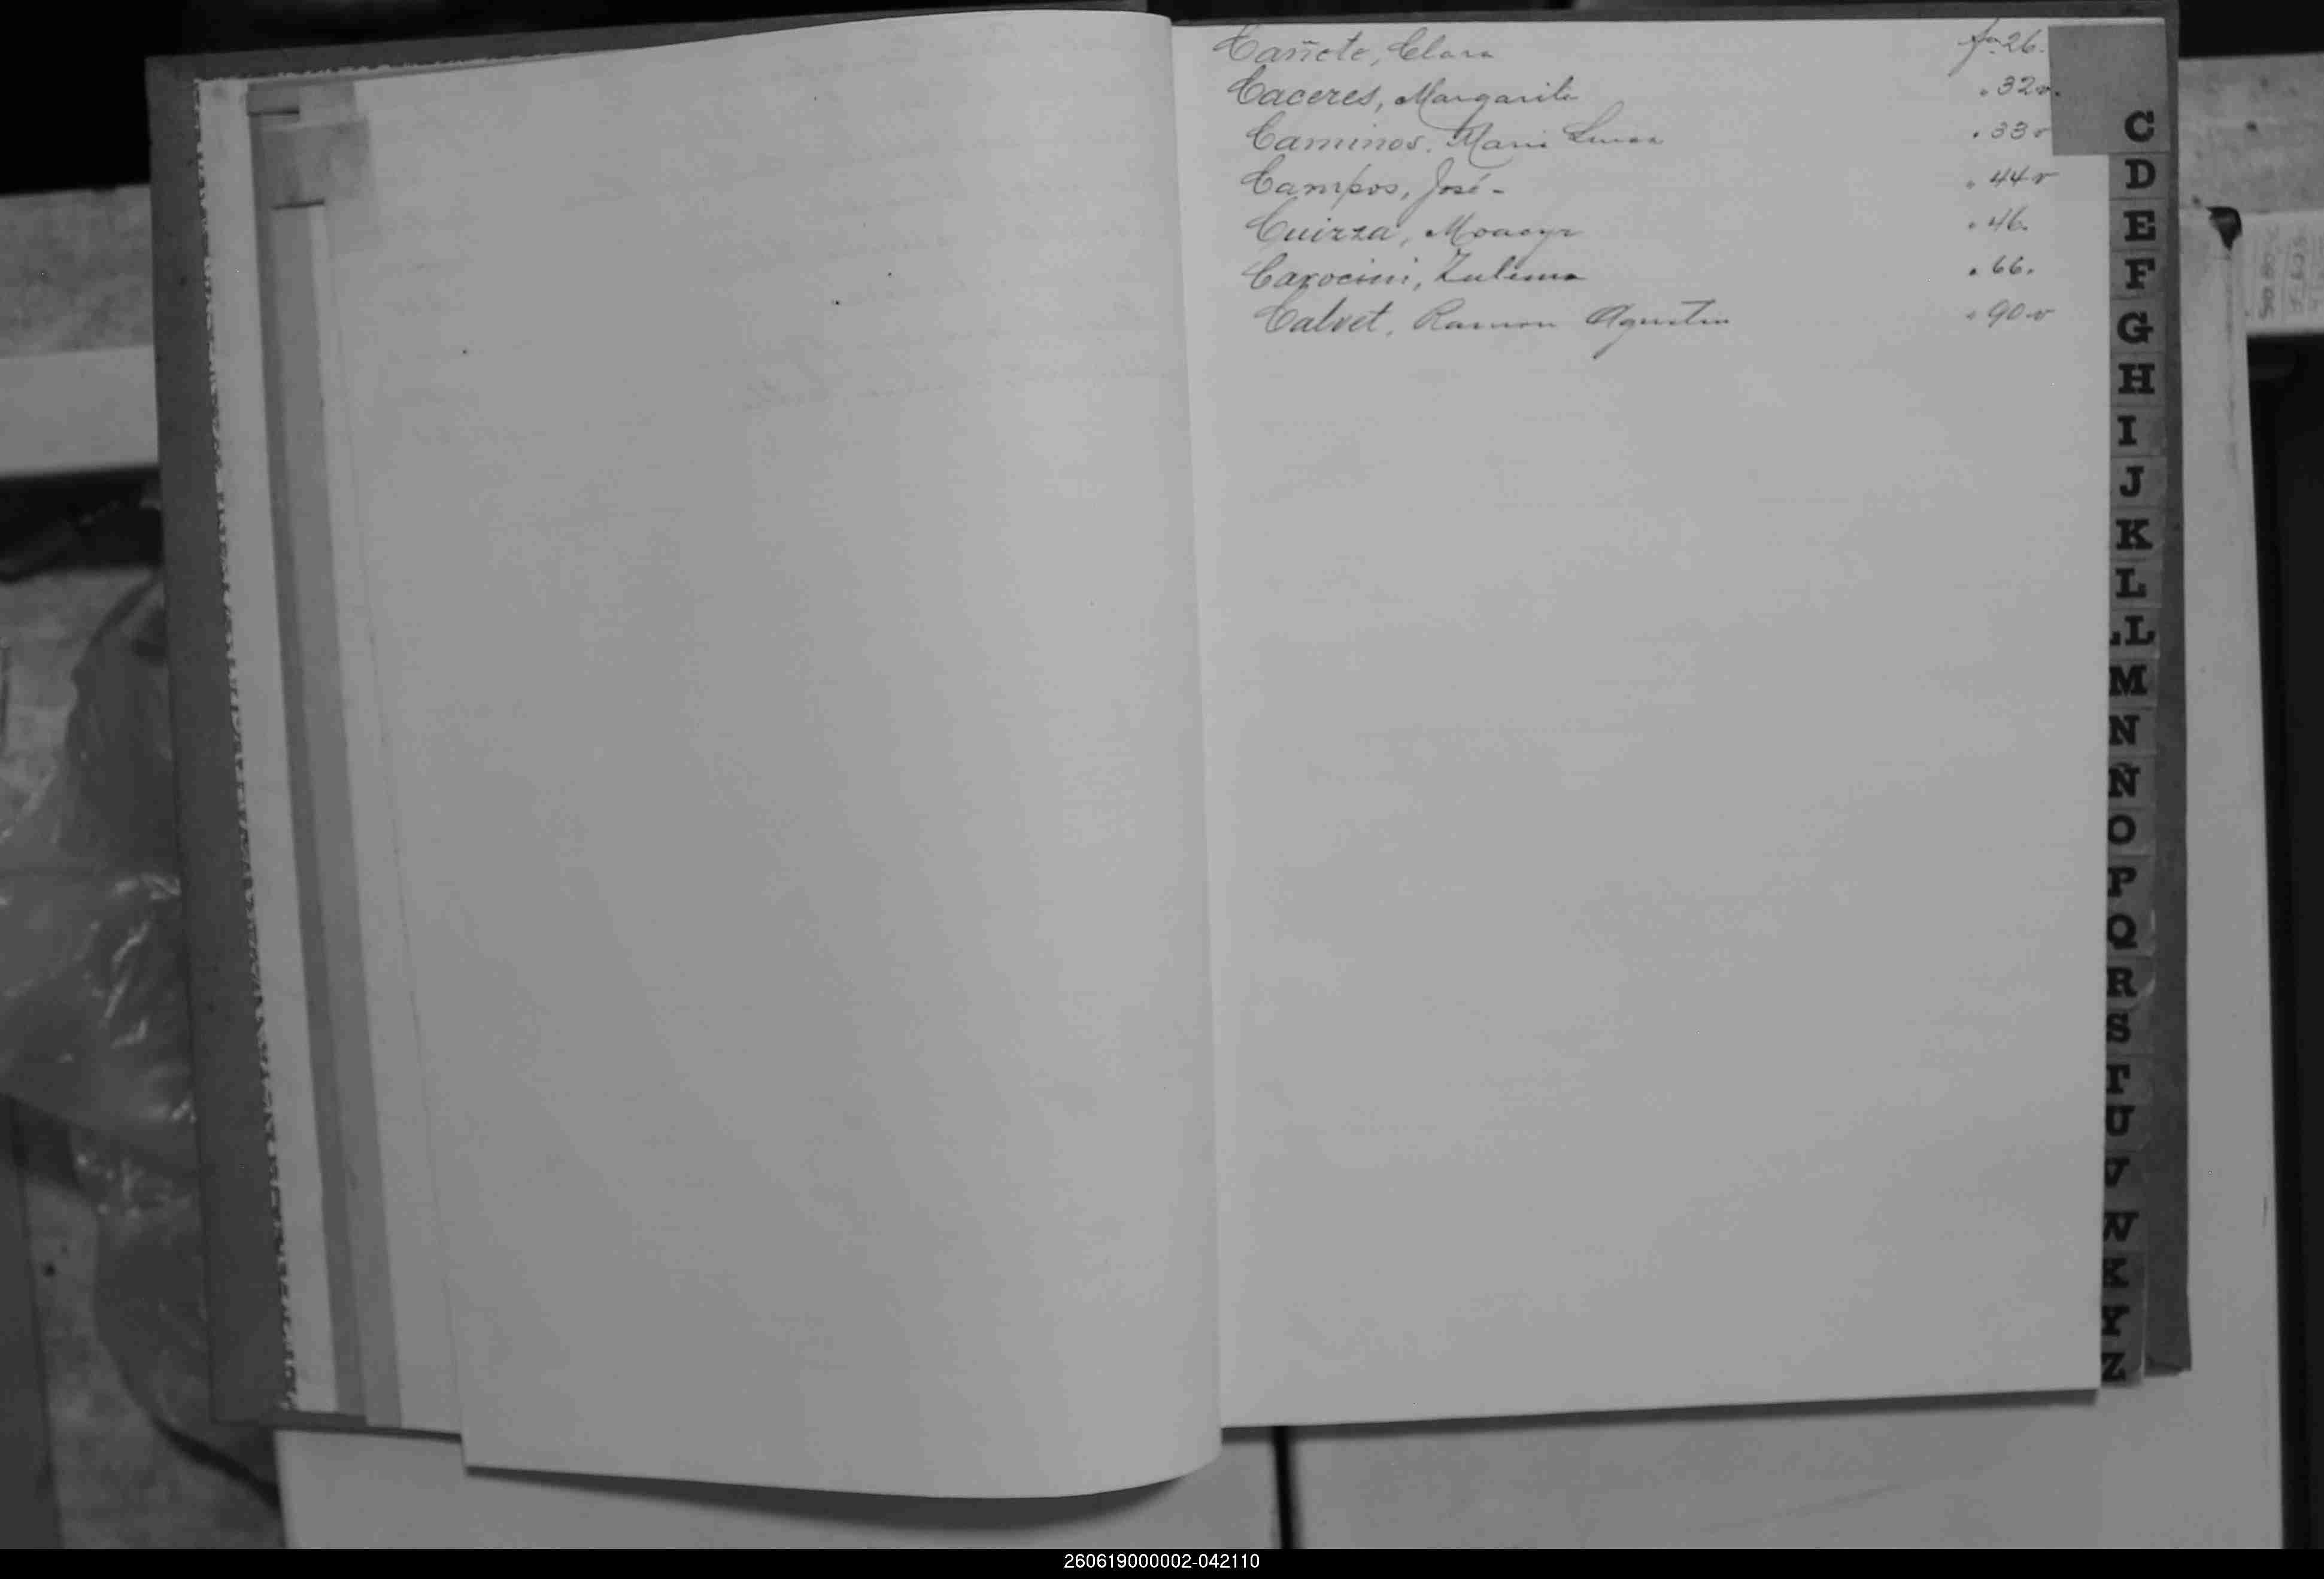 Cañete, Clara fo 26.
Caceres, Margarita " 32v.
Caminos, Maria Luisa " 33v
Campos, José - " 44v
Cuirza, Moacyr " 46.
Carocini, Zulema " 66.
Calvet, Ramon Agustin " 90v
C
D
E
F
G
H
I
J
K
L
LL
M
N
Ñ
O
P
Q
R
S
T
U
V
W
X
Y
Z
260619000002-042110